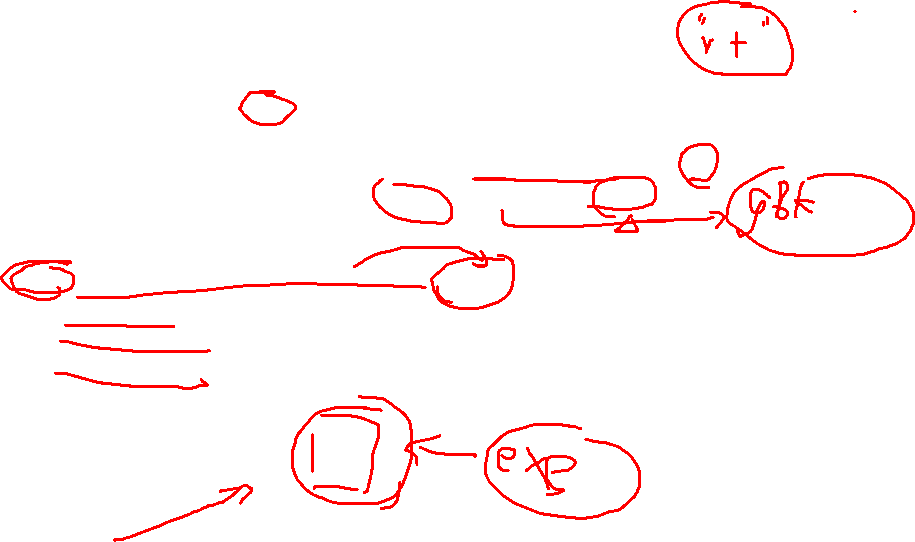 "rt"
gbk
exp